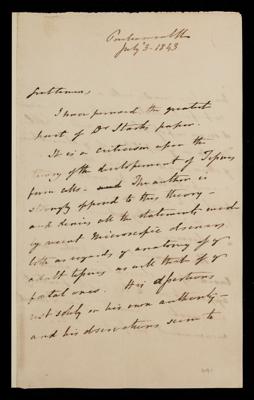 July 3. 1843
Gentlemen,
I have perused the greatest
part of Dr Stark's paper.
It is a criticism upon the
theory of the development of Tissues
from cells - and The author is
strongly opposed to this theory -
and denies all the statements made
by recent Microscopic observers
both as regards ye anatomy of ye
adult tissues as well that of ye
foetal ones. His assertions
rest solely on his own authority -
and his observations seem to